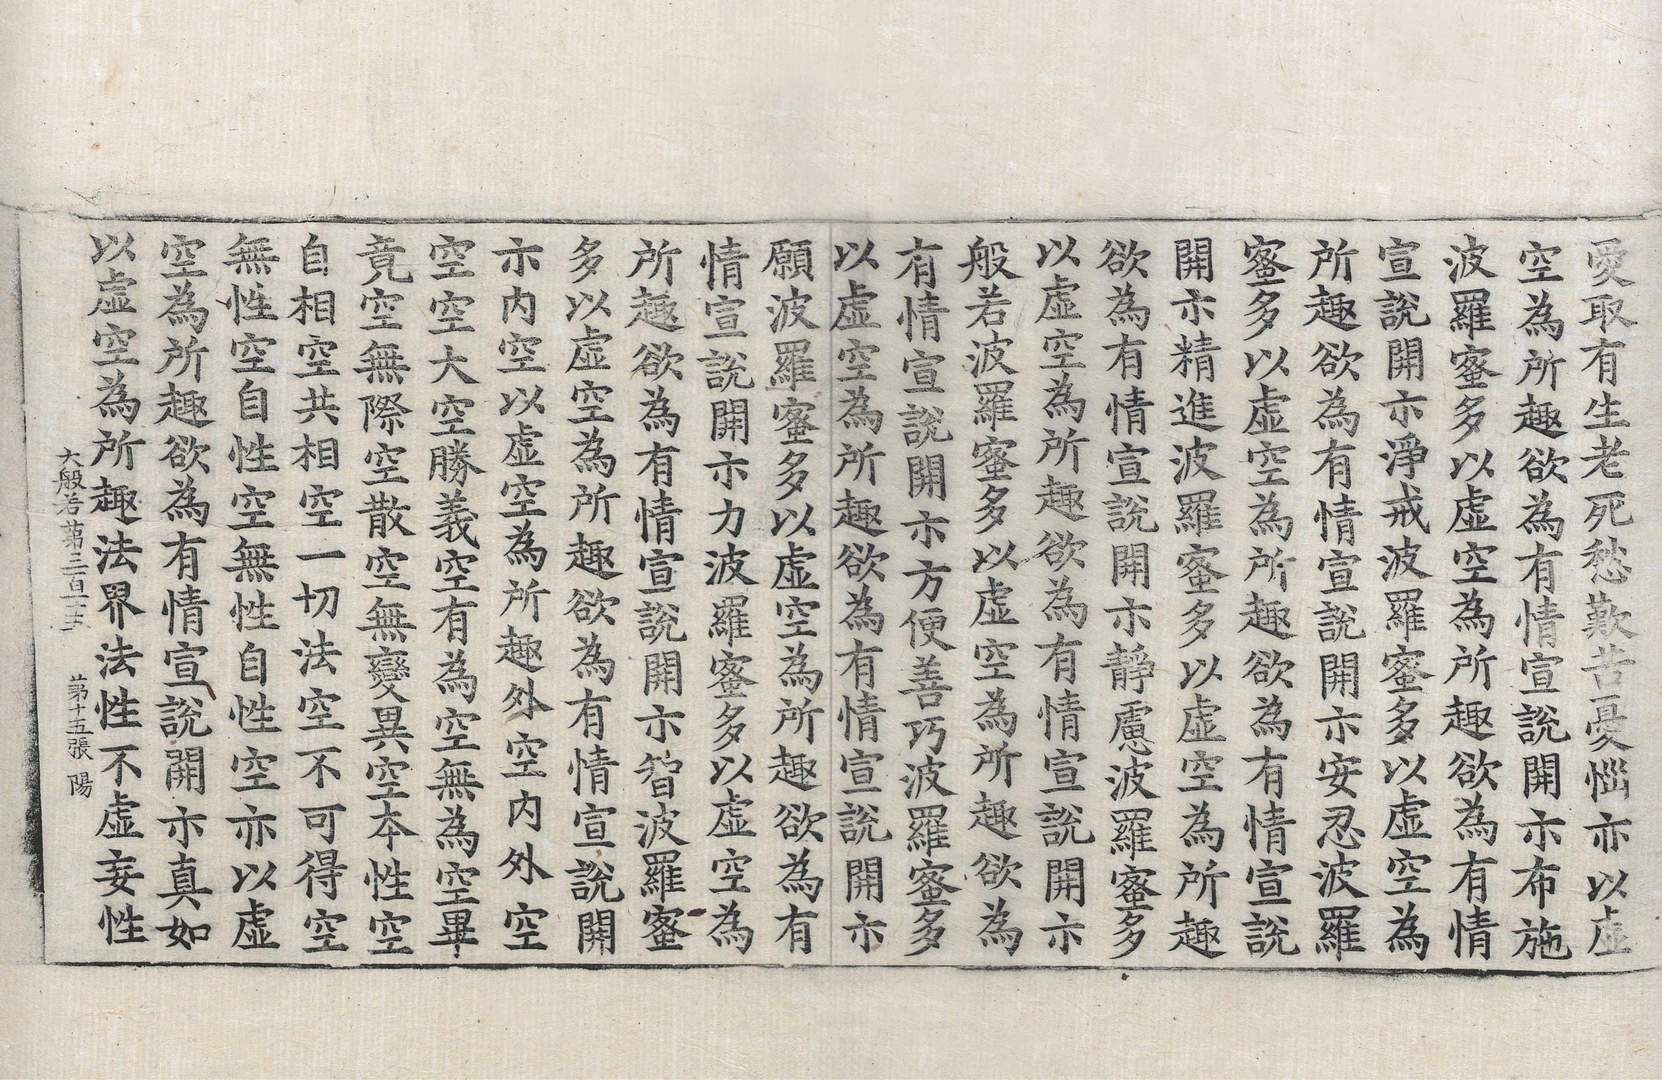 愛取有生老死愁歎苦憂惱亦以虛
空為所趣欲為有情宣說開示布施
波羅蜜多以虛空為所趣欲為有情
宣說開示淨戒波羅蜜多以虛空為
所趣欲為有情宣說開示安忍波羅
蜜多以虛空為所趣欲為有情宣說
開示精進波羅蜜多以虛空為所趣
欲為有情宣說開示靜慮波羅蜜多
以虛空為所趣欲為有情宣說開示
般若波羅蜜多以虛空為所趣欲為
有情宣說開示方便善巧波羅蜜多
以虛空為所趣欲為有情宣說開示
願波羅蜜多以虛空為所趣欲為有
情宣說開示力波羅蜜多以虛空為
所趣欲為有情宣說開示智波羅蜜
多以虛空為所趣欲為有情宣說開
示內空以虛空為所趣外空內外空
空空大空勝義空有為空無為空畢
竟空無際空散空無變異空本性空
自相空共相空一切法空不可得空
無性空自性空無性自性空亦以虛
空為所趣欲為有情宣說開示真如
以虛空為所趣法界法性不虛妄性
大般若第三百 第十五張 陽